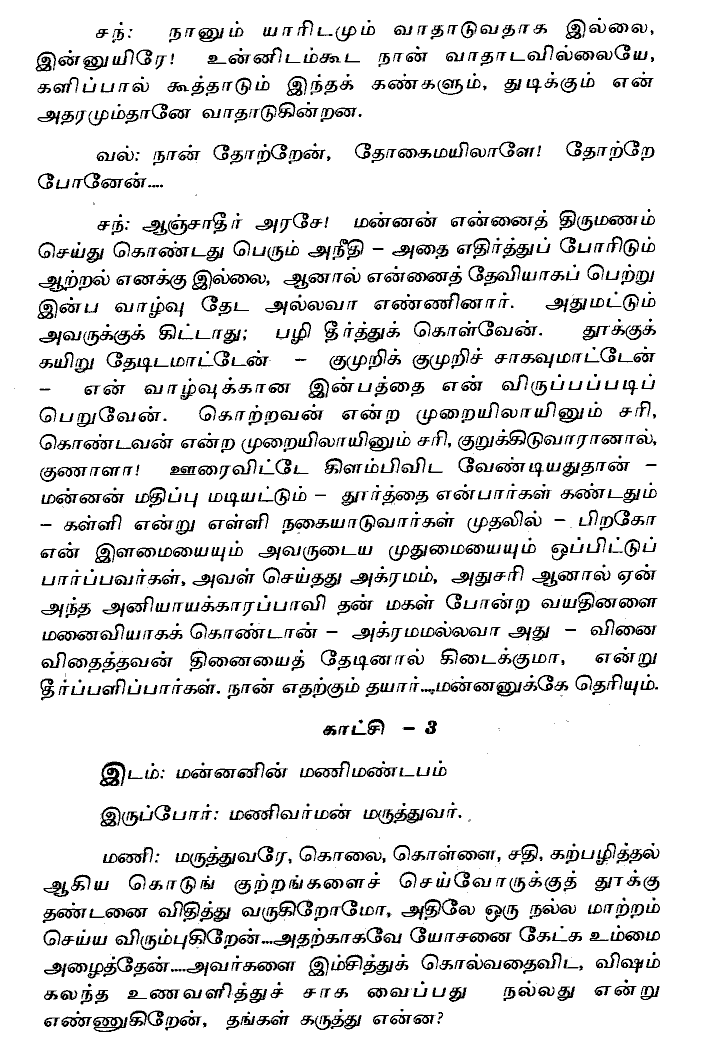 சந்: நானும் யாரிடமும் வாதாடுவதாக இல்லை,
இன்னுயிரே! உன்னிடம்கூட நான் வாதாடவில்லையே,
களிப்பால் கூத்தாடும் இந்தக் கண்களும், துடிக்கும் என்
அதரமும்தானே வாதாடுகின்றன.
வல்: நான் தோற்றேன், தோகைமயிலாளே! தோற்றே
போனேன்....
சந்: ஆஞ்சாதீர் அரசே! மன்னன் என்னைத் திருமணம்
செய்து கொண்டது பெரும் அநீதி – அதை எதிர்த்துப் போரிடும்
ஆற்றல் எனக்கு இல்லை, ஆனால் என்னைத் தேவியாகப் பெற்று
இன்ப வாழ்வு தேட அல்லவா எண்ணினார். அதுமட்டும்
அவருக்குக் கிட்டாது; பழி தீர்த்துக் கொள்வேன். தூக்குக்
கயிறு தேடிடமாட்டேன் – குமுறிக் குமுறிச் சாகவுமாட்டேன்
– என் வாழ்வுக்கான இன்பத்தை என் விருப்பப்படிப்
பெறுவேன். கொற்றவன் என்ற முறையிலாயினும் சரி,
கொண்டவன் என்ற முறையிலாயினும் சரி, குறுக்கிடுவாரானால்,
குணாளா! ஊரைவிட்டே கிளம்பிவிட வேண்டியதுதான் –
மன்னன் மதிப்பு மடியட்டும் – தூர்த்தை என்பார்கள் கண்டதும்
– கள்ளி என்று எள்ளி நகையாடுவார்கள் முதலில் – பிறகோ
என் இளமையையும் அவருடைய முதுமையையும் ஒப்பிட்டுப்
பார்ப்பவர்கள், அவள் செய்தது அக்ரமம், அதுசரி ஆனால் ஏன்
அந்த அனியாயக்காரப்பாவி தன் மகள் போன்ற வயதினளை
மனைவியாகக் கொண்டான் – அக்ரமமல்லவா அது – வினை
விதைத்தவன் தினையைத் தேடினால் கிடைக்குமா, என்று
தீர்ப்பளிப்பார்கள். நான் எதற்கும் தயார்....மன்னனுக்கே தெரியும்.
காட்சி – 3
இடம்: மன்னனின் மணிமண்டபம்
இருப்போர்: மணிவர்மன் மருத்துவர்.
மணி: மருத்துவரே, கொலை, கொள்ளை, சதி, கற்பழித்தல்
ஆகிய கொடுங் குற்றங்களைச் செய்வோருக்குத் தூக்கு
தண்டனை விதித்து வருகிறோமோ, அதிலே ஒரு நல்ல மாற்றம்
செய்ய விரும்புகிறேன்...அதற்காகவே யோசனை கேட்க உம்மை
அழைத்தேன்....அவர்களை இம்சித்துக் கொல்வதைவிட, விஷம்
கலந்த உணவளித்துச் சாக வைப்பது நல்லது என்று
எண்ணுகிறேன், தங்கள் கருத்து என்ன?